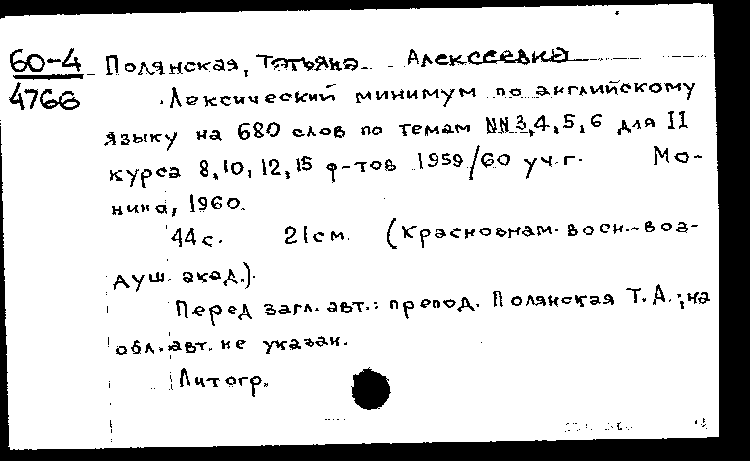 60-4 Полянская, Татьяна Алексеевна
4766 Лексический минимум по английскому
языку на 680 слов по темам NN 3,4,5,6 для II
курса 8,10,12,15 ф-тов 1959/60 уч.г. Мо-
нино, 1960.
44с. 21см. (Краснознам. воен.-воз-
душ. акад.).
Перед загл. авт.: препод. Полянская Т.А.; на
обл. авт. не указан.
Литогр.